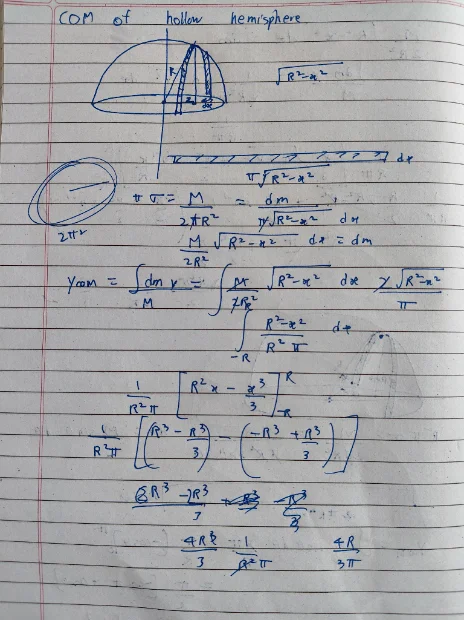 COM of hollow hemisphere
R
√R²-x²
dx
π√R²-x²
2πr
σ = M/2πR² = dm/π√R²-x² dx
M/2R² √R²-x² dx = dm
Ycom = ∫dm y/M = ∫ M/2R² √R²-x² dx 2√R²-x²/π
∫-R R²-x²/R²π dx
1/R²π [R²x - x³/3]R-R
1/R²π [(R³ - R³/3) - (-R³ + R³/3)]
6R³ - 2R³/3
4R³/3 1/R²π 4R/3π